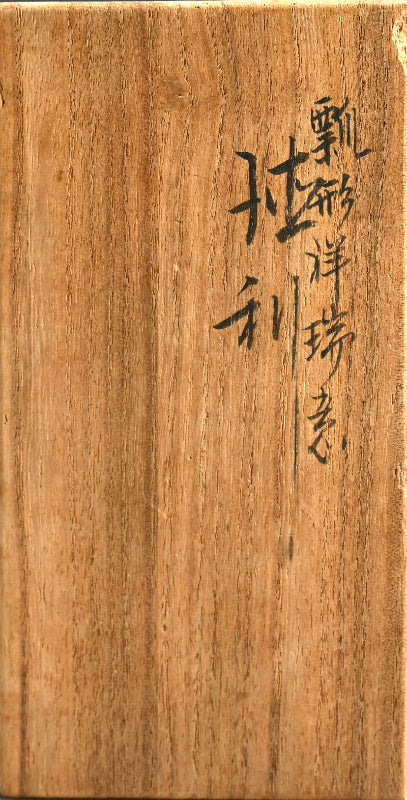 瓢形祥瑞意
徳利